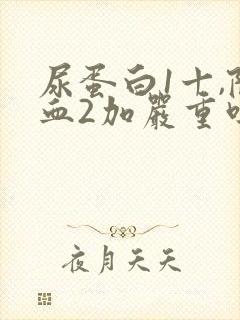 尿蛋白1十,
血2加嚴重
夜月天天